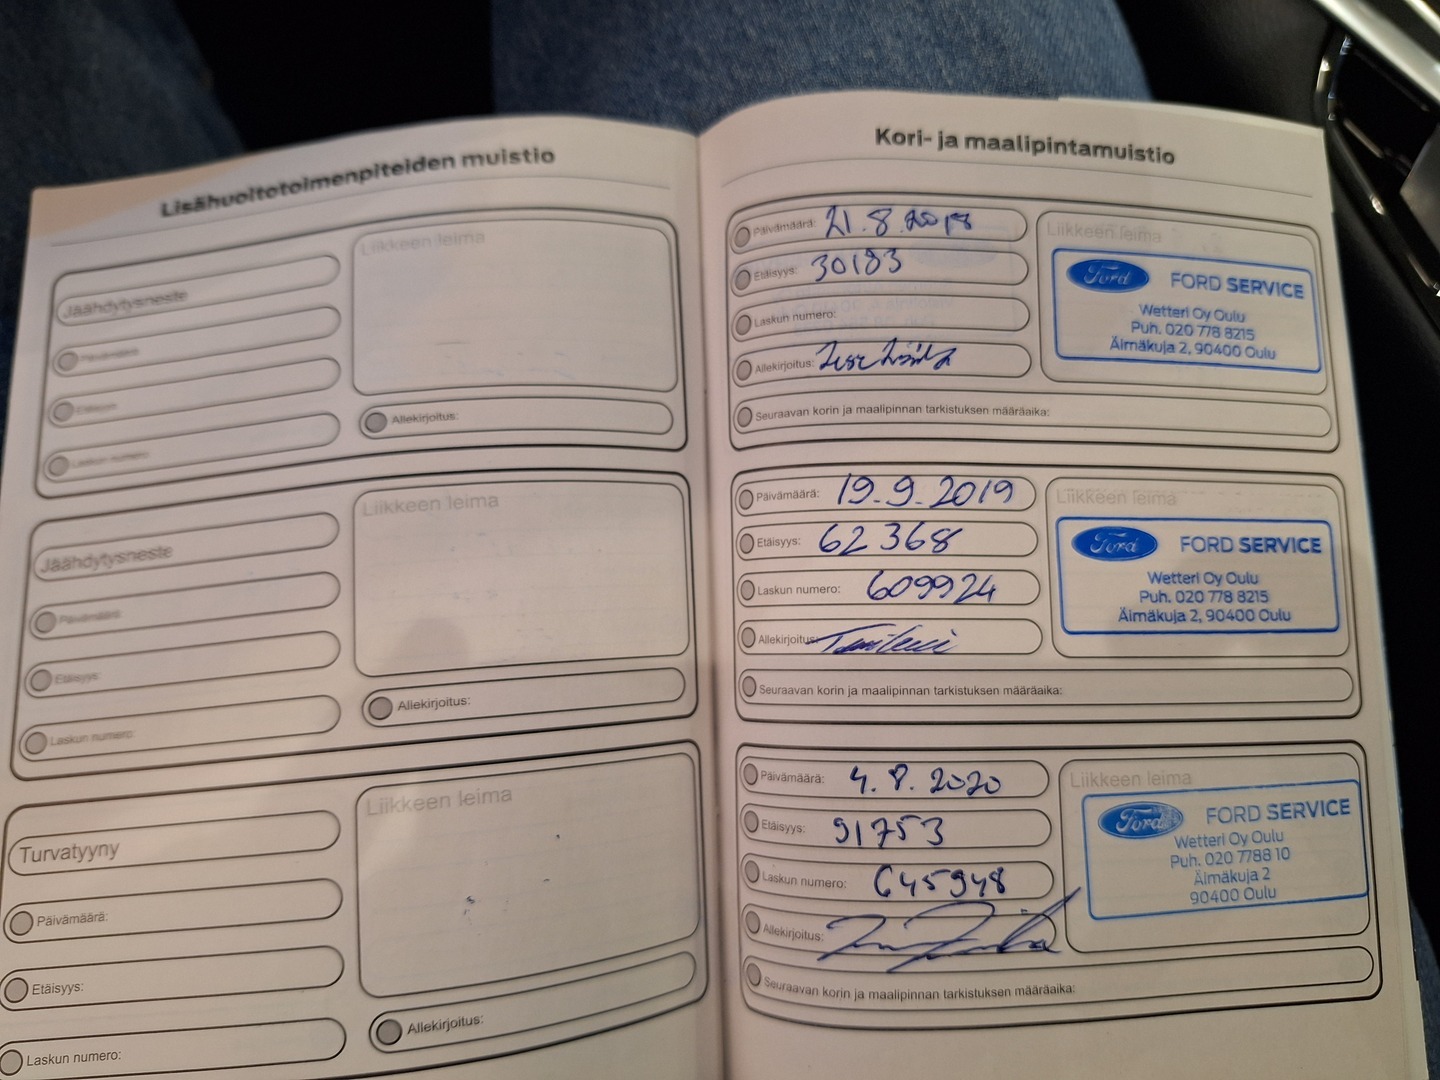 Lisähuoltotoimenpiteiden muistio
Jäähdytysneste
Päivämäärä:
Etäisyys:
Laskun numero:
Liikkeen leima
Allekirjoitus:
Jäähdytysneste
Päivämäärä:
Etäisyys:
Laskun numero:
Liikkeen leima
Allekirjoitus:
Turvatyyny
Päivämäärä:
Etäisyys:
Laskun numero:
Liikkeen leima
Allekirjoitus:
Kori- ja maalipintamuistio
Päivämäärä: 21.8.2018
Etäisyys: 30183
Laskun numero:
Allekirjoitus:
Liikkeen leima
Ford FORD SERVICE
Wetteri Oy Oulu
Puh. 020 778 8215
Äimäkuja 2, 90400 Oulu
Seuraavan korin ja maalipinnan tarkistuksen määräaika:
Päivämäärä: 19.9.2019
Etäisyys: 62368
Laskun numero: 609924
Allekirjoitus:
Liikkeen leima
Ford FORD SERVICE
Wetteri Oy Oulu
Puh. 020 778 8215
Äimäkuja 2, 90400 Oulu
Seuraavan korin ja maalipinnan tarkistuksen määräaika:
Päivämäärä: 4.8.2020
Etäisyys: 91753
Laskun numero: 645948
Allekirjoitus:
Liikkeen leima
Ford FORD SERVICE
Wetteri Oy Oulu
Puh. 020 7788 10
Äimäkuja 2
90400 Oulu
Seuraavan korin ja maalipinnan tarkistuksen määräaika: